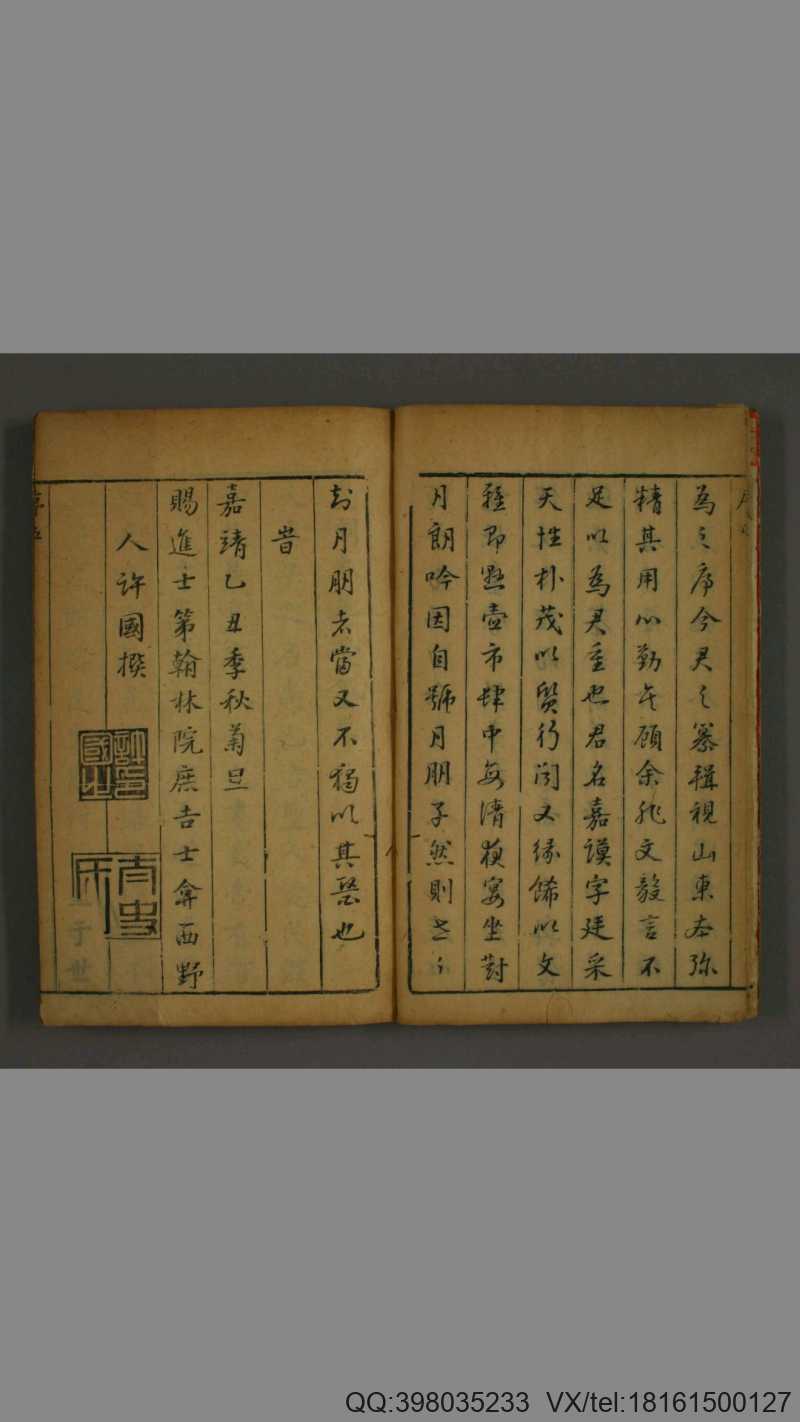 為之序今君之纂輯視山東本弥
精其用心勤矣顧余非文敢言不
足以為君重也君名嘉謨字廷采
天性朴茂以質行聞又緣飾以文
雖即懸壺市肆中每清夜宴坐對
月朗吟因自號月朋子然則世之
知月朋者當又不獨以其醫也
旹
嘉靖乙丑季秋菊旦
賜進士第翰林院庶吉士歙西野
人許國撰
許國之印
QQ:398035233 VX/tel:18161500127